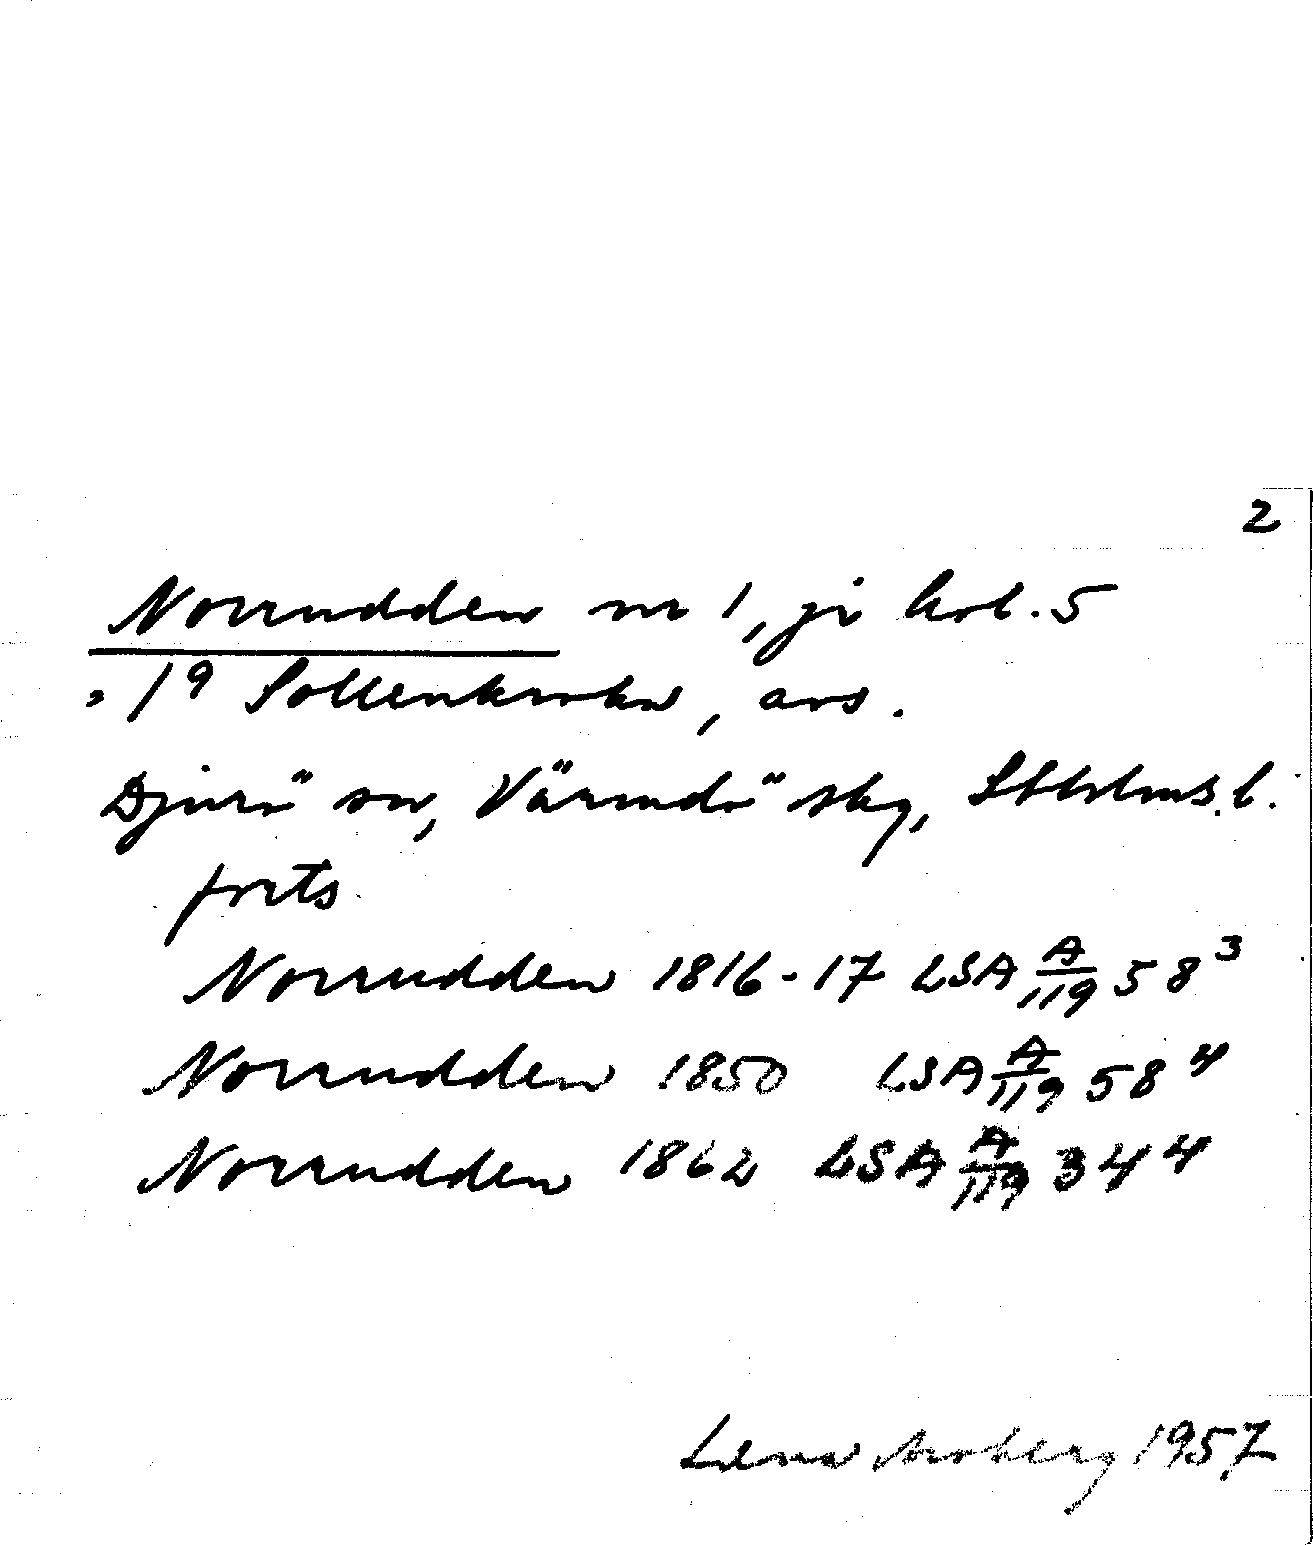 2
Norrudden nr 1, ji kol. 5
, 19 Sollenkroka, avs.
Djurö sn, Värmdö skg, Stkholms. l.
forts
Norrudden 1816-17 LSA A/119 58³
Norrudden 1850 LSA A/119 58⁴
Norrudden 1862 LSA A/119 34⁴
Lena Moberg 1957